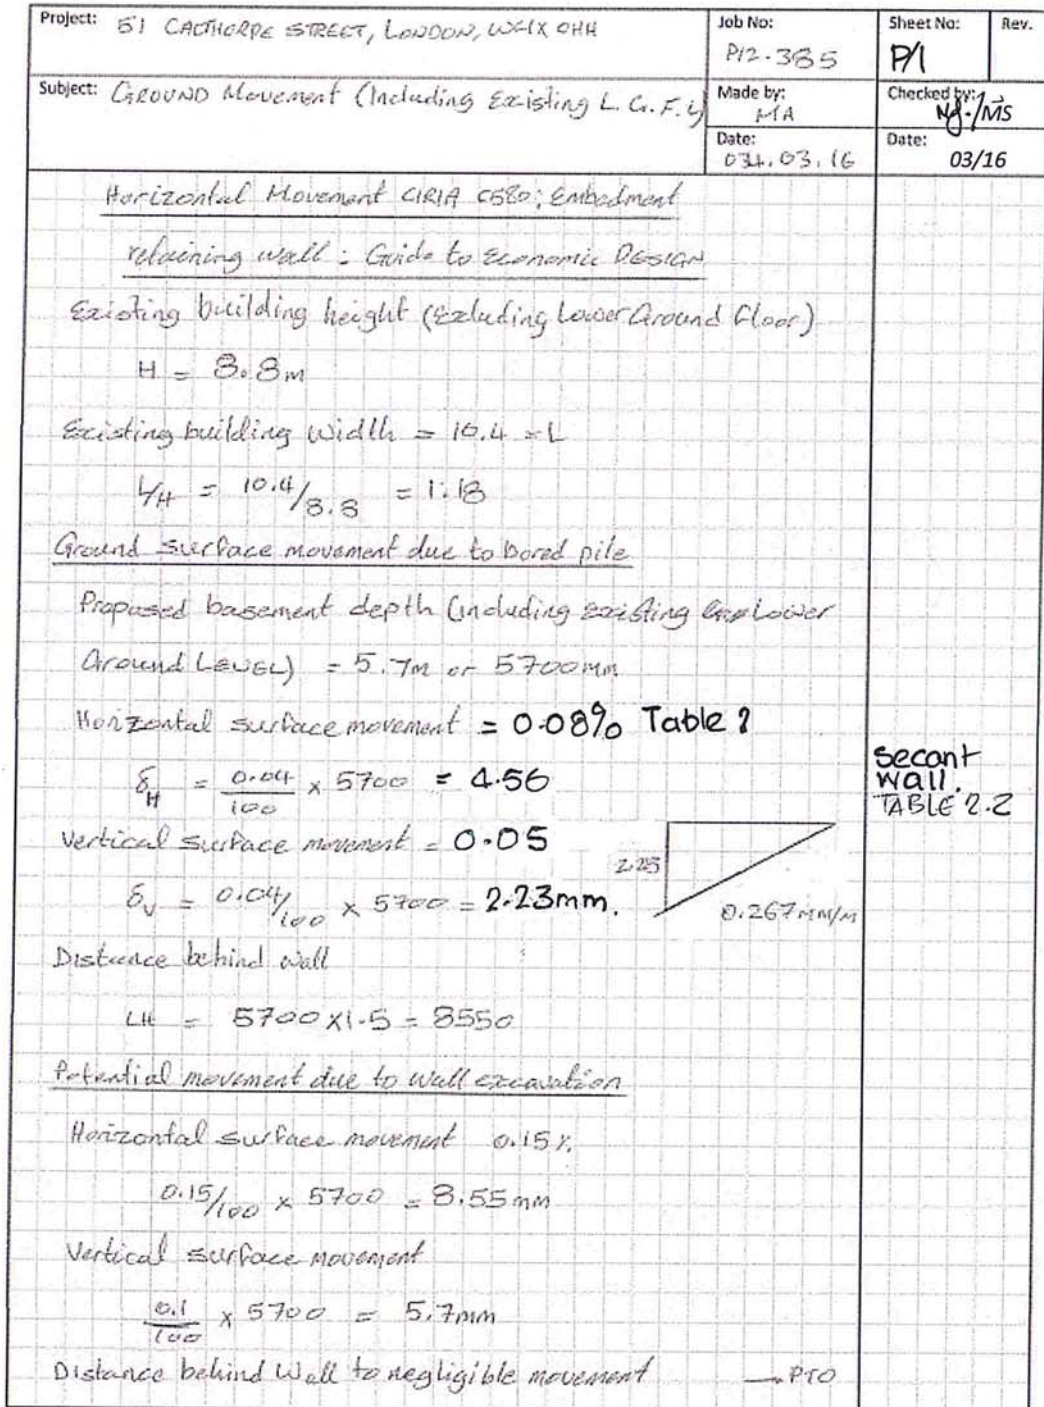 Project: 51 CALTHORPE STREET, LONDON, WC1X 0HH
Job No: P12-385
Sheet No: P/1
Rev.
Subject: GROUND Movement (Including Existing L.G.F.L)
Made by: MA
Checked by: NJ./MS
Date: 034.03.16
Date: 03/16
Horizontal Movement CIRIA C580; Embedment
retaining wall: Guide to Economic DESIGN
Existing building height (Excluding Lower Ground Floor)
H = 8.8m
Existing building Width = 10.4 = L
L/H = 10.4/8.8 = 1.18
Ground surface movement due to bored pile
Proposed basement depth (including existing Lower
Ground LEVEL) = 5.7m or 5700mm
Horizontal surface movement = 0.08% Table 2
δH = 0.04/100 x 5700 = 4.56
secant wall.
TABLE 2.2
Vertical surface movement = 0.05
δV = 0.04/100 x 5700 = 2.23mm.
2.28
0.267mm/m
Distance behind wall
LH = 5700 x1.5 = 8550
Potential movement due to wall excavation
Horizontal surface movement 0.15%
0.15/100 x 5700 = 8.55mm
Vertical surface movement
0.1/100 x 5700 = 5.7mm
Distance behind Wall to negligible movement → PTO